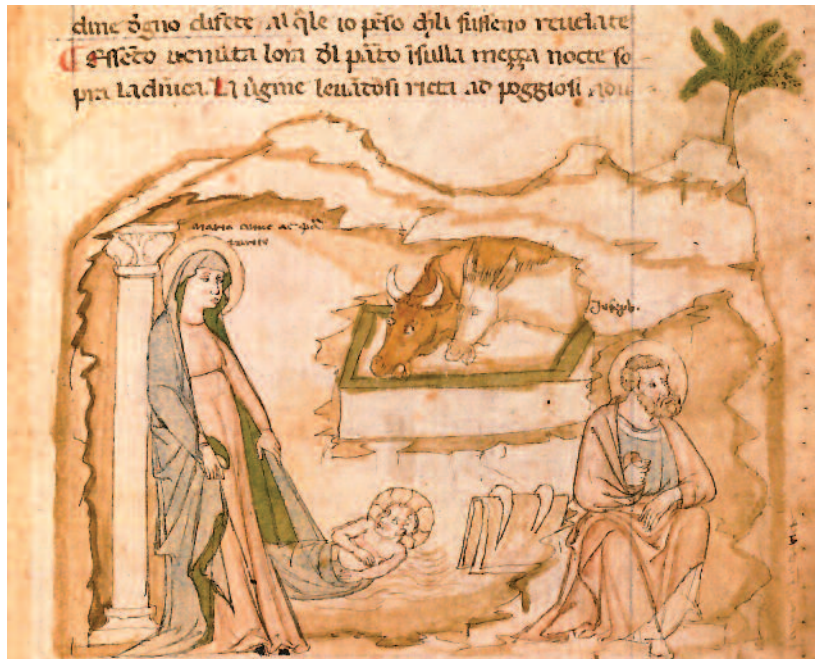 dine ogno disere al qle io peso chli fussero reuelate
Essedo uenuta lora dl parto isulla mezza nocte so
pra la dnica. La ugine leuatosi ricta ad poggiosi
Maria
Joseph.